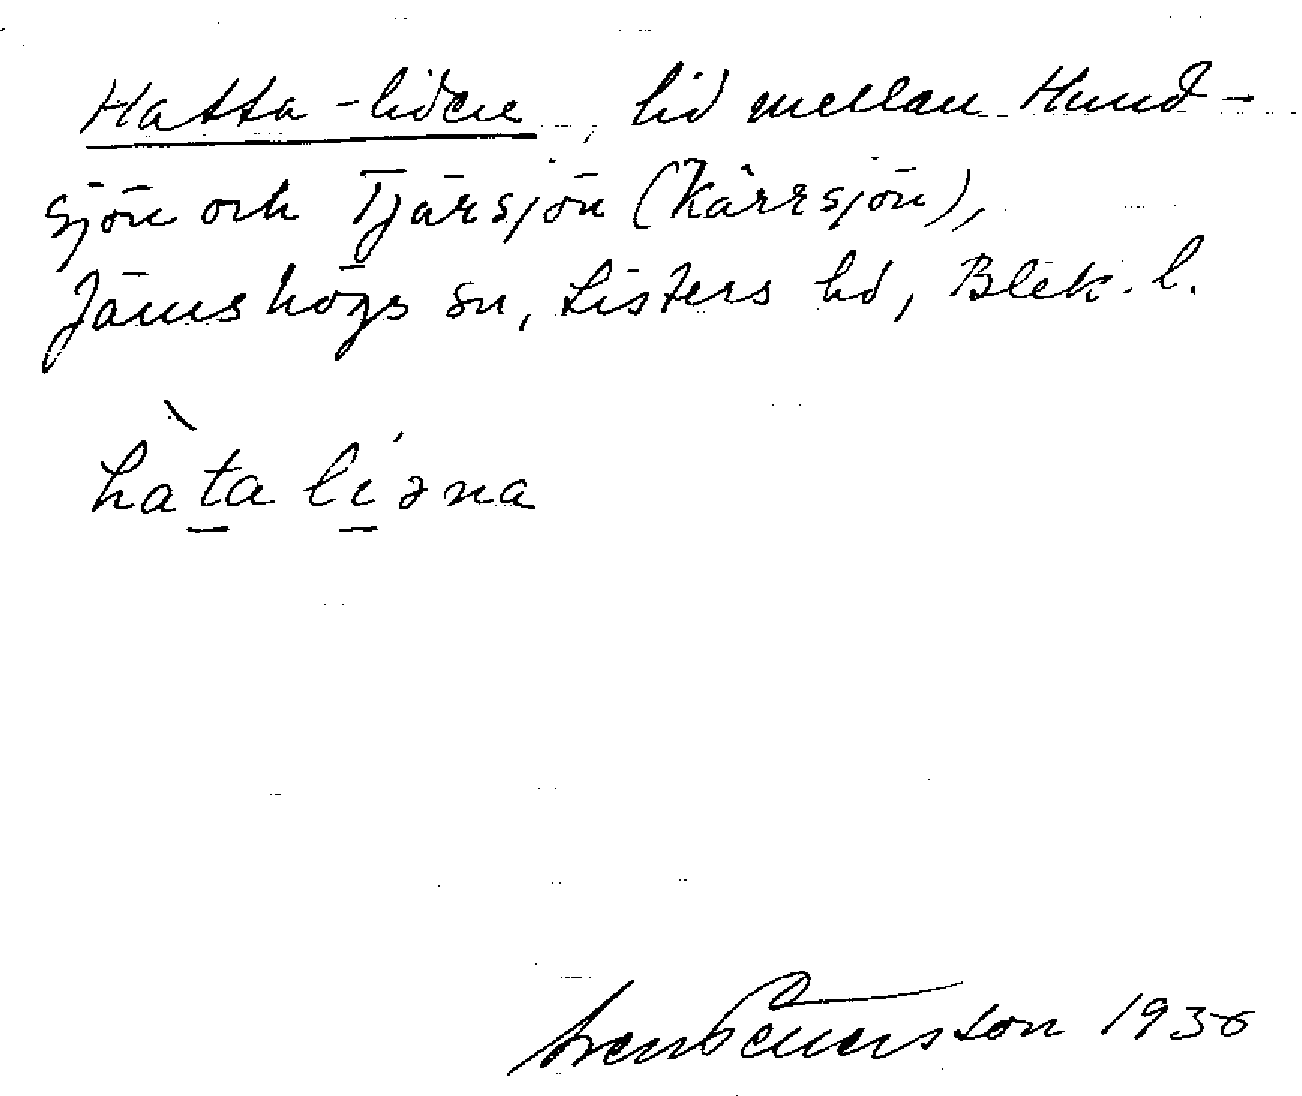 Hatta-liden, lid mellan Hund-
sjön och Tjärsjön (Kärrsjön),
Jämshögs sn, Listers hd, Blek. l.
hàta líəna
1936